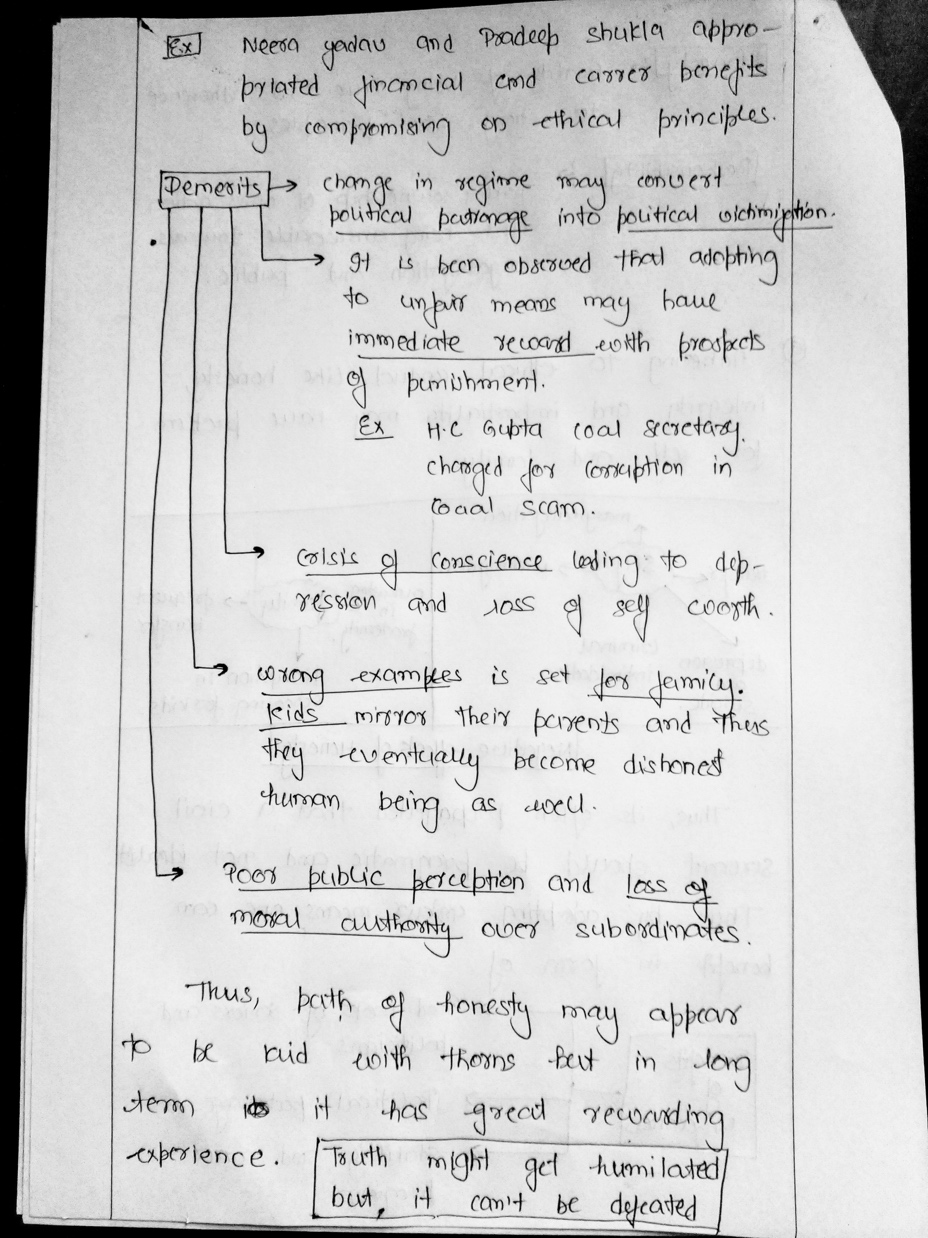 Ex Neera yadav and Pradeep shukla appro-
priated financial and carrer benefits
by compromising on ethical principles.
Demerits → change in regime may convert
political patronage into political victimization.
It is been observed that adopting
to unfair means may have
immediate reward with prospects
of punishment.
Ex H.C Gupta coal secretary.
charged for corruption in
coaal scam.
crisis of conscience leding to dep-
ression and loss of self worth.
wrong examples is set for family.
kids mirror their parents and thus
they eventually become dishonest
human being as well.
Poor public perception and loss of
moral authority over subordinates.
Thus, path of honesty may appear
to be laid with thorns but in long
term it has great rewarding
experience. Truth might get humilated
but, it can't be defeated